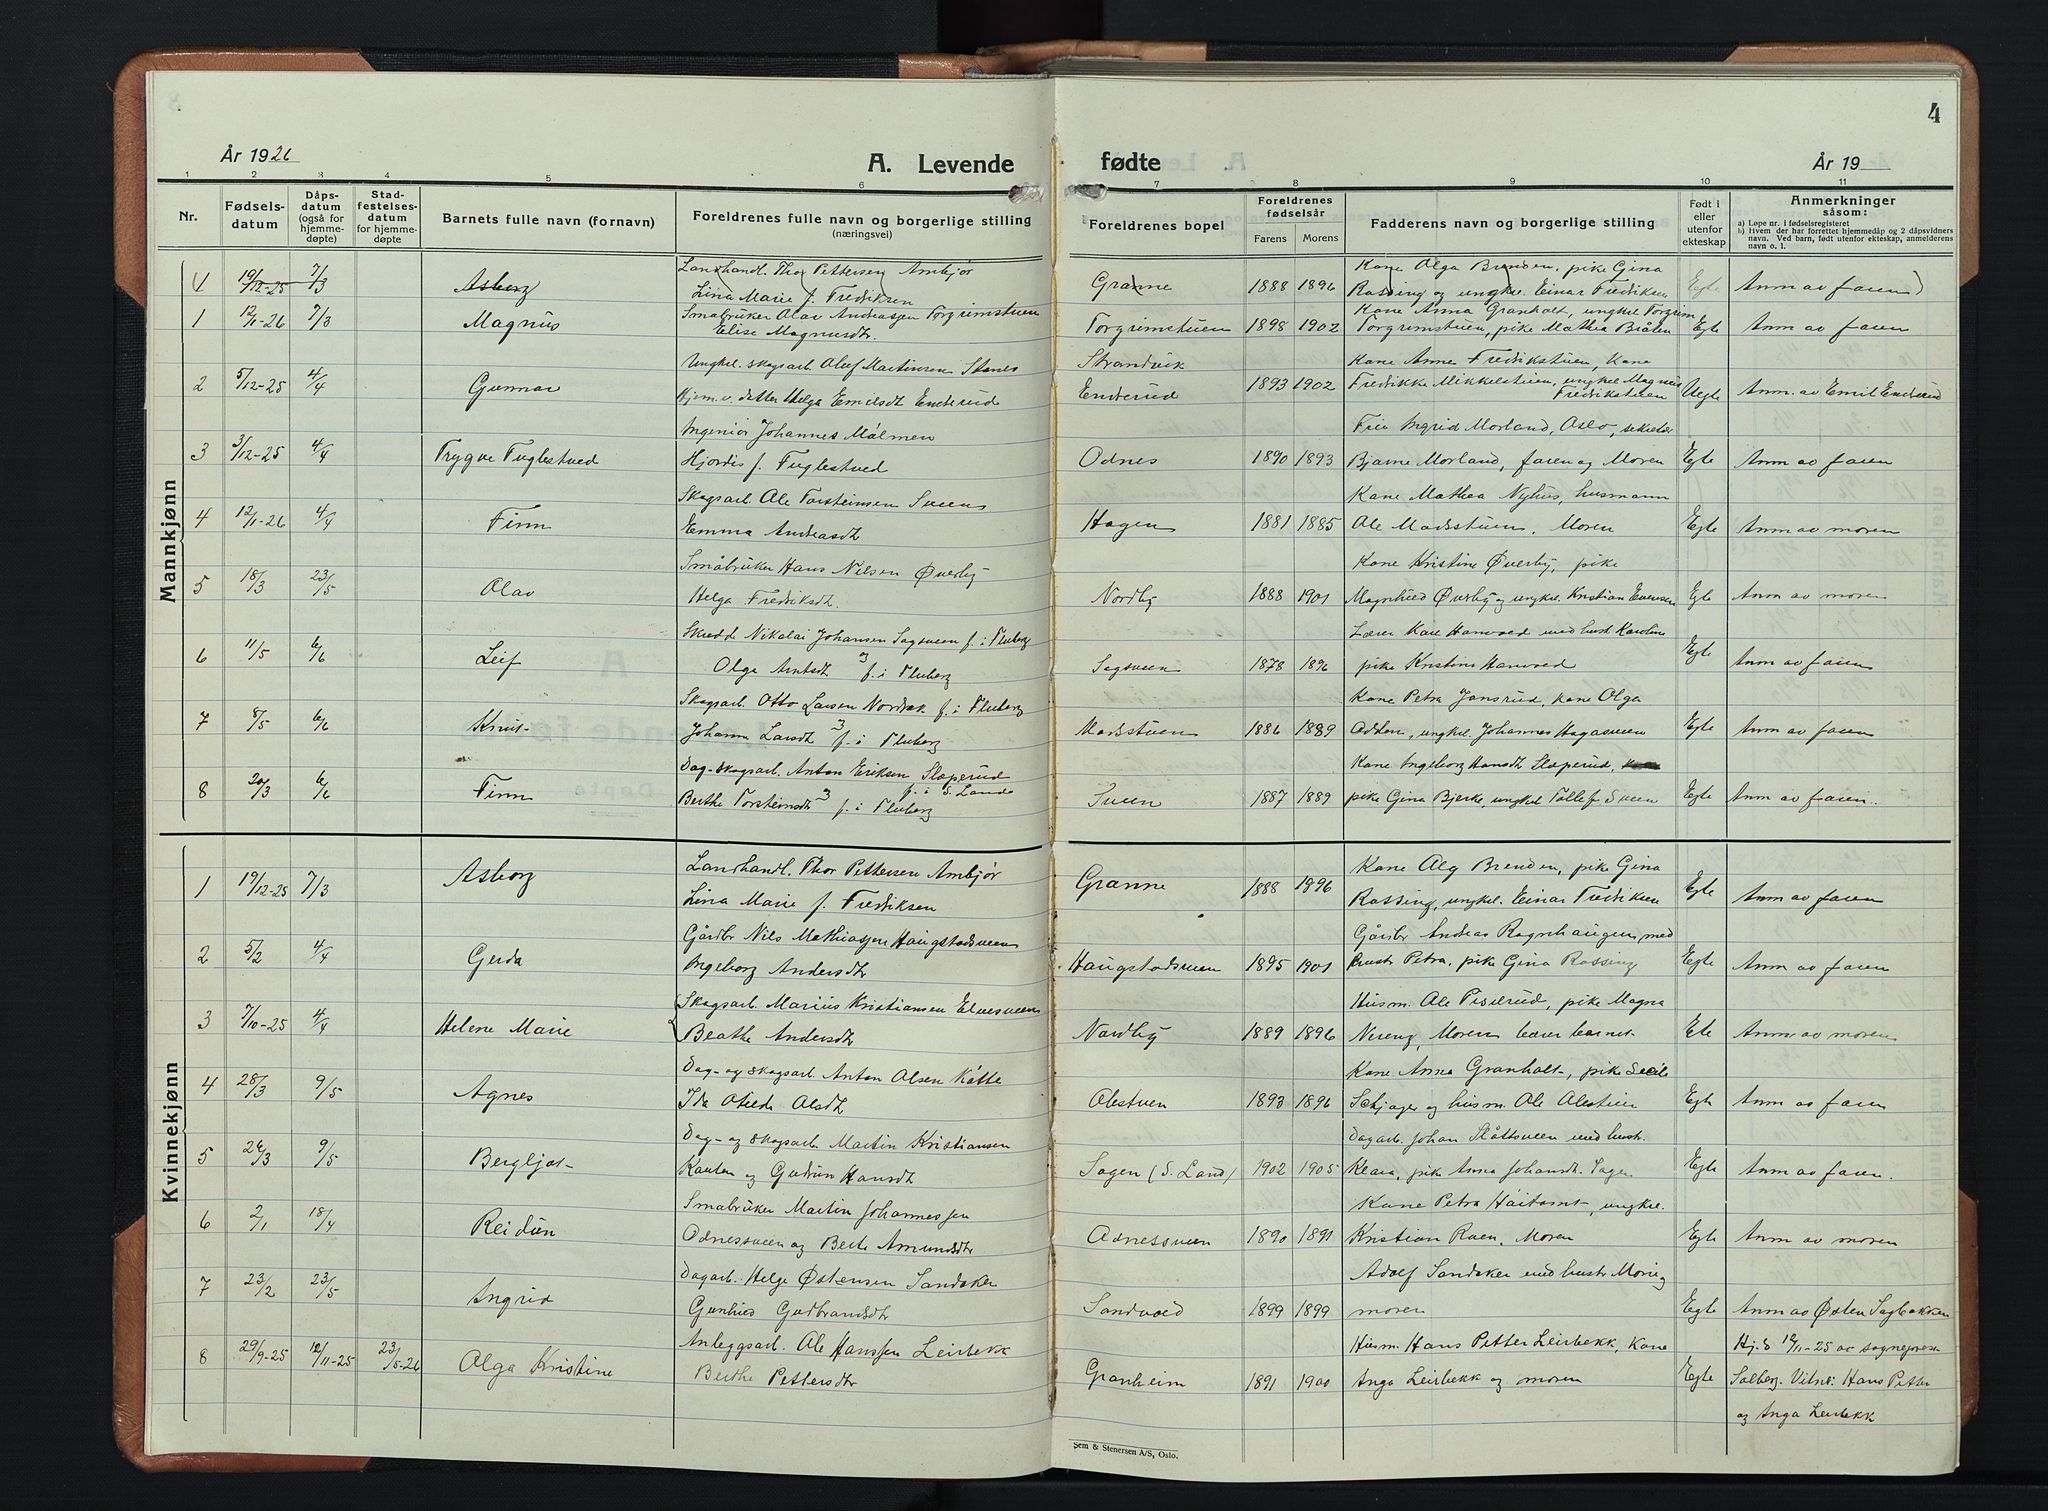 År 1926
A. Levende
fødte
År 19
4
1 2 3 4 5 6 7 8 9 10 11
Nr.
Fødsels-
datum
Dåps-
datum
(også for
hjemme-
døpte)
Stad-
festelses-
datum
for hjemme-
døpte
Barnets fulle navn (fornavn)
Foreldrenes fulle navn og borgerlige stilling
(næringsvei)
Foreldrenes bopel
Foreldrenes
fødselsår
Farens
Morens
Fadderens navn og borgerlige stilling
Født i
eller
utenfor
ekteskap
Anmerkninger
såsom:
a) Løpe nr. i fødselsregisteret
b) Hvem der har forrettet hjemmedåp og 2 dåpsvidners
navn. Ved barn, født utenfor ekteskap, anmelderens
navn o. l.
Mannkjønn
(1 19/12-25 7/3 Asborg
Landhandl. Thor Pettersen Ambjør
Lina Marie f. Fredriksen
Granne 1888 1896
Kone Olga Brenden, pike Gina
Rossing og ungkel. Einar Fredriksen
Egte Anm av faren)
1 12/1-26 7/3 Magnus
Småbruker Olav Andreassen Torgrimstuen
Elise Magnusdt.
Torgrimstuen 1898 1902
Kone Anna Granholt, ungkel Torgrim
Torgrimstuen, pike Mathea Bråten
Egte Anm av faren
2 5/12-25 4/4 Gunnar
Ungkel. skogsarb. Olaf Martinsen Stenes
Hjem.v. datter Helga Emilsdt Enderud
Strandvik
Enderud 1893 1902
Kone Anne Fredrikstuen, Kone
Fredrikke Mikkelstuen, ungkel Magnus
Fredrikstuen
Uegte Anm. av Emil Enderud
3 3/12-25 4/4 Trygve Fuglestved
Ingeniør Johannes Målmen
Hjørdis f. Fuglestved
Odnes 1890 1893
Frøi Ingrid Morland, Oslo, sekretær
Bjarne Morland, faren og Moren
Egte Anm av faren
4 12/1-26 4/4 Finn
Skogsarb. Ole Torsteinsen Sveen
Emma Andreasdt
Hagen 1881 1885
Kone Mathea Nyhus, husmann
Ole Madsstuen, Moren
Egte Anm av moren
5 18/3 23/5 Olav
Småbruker Hans Nilsen Øverby
Helga Fredriksdt.
Nordby 1888 1901
Kone Kristine Øverby, pike
Magnhild Øverby og ungkel. Kristian Evensen
Egte Anm av moren
6 11/5 6/6 Leif
Skredd Nikolai Johansen Sagsveen f. i Fluberg
Olga Arntsdt f. i Fluberg
Sagsveen 1878 1896
Lærer Kåre Hanevold med hust Karoline
pike Kristine Hanevold
Egte Anm av faren
7 8/5 6/6 Knut
Skogsarb. Otto Larsen Nordrøk f. i Fluberg
Johanne Larsdt f. i Fluberg
Madsstuen 1886 1889
Kone Petra Jansrud, kone Olga
Odden, ungkel. Johannes Hagasveen
Egte Anm av faren
8 20/3 6/6 Finn
Dag-skogsarb. Anton Eriksen Slåperud
f. i S. Land
Berthe Torsteinsdt f. i Fluberg
Sveen 1887 1889
Kone Ingeborg Hansdt Slåperud,
pike Gina Bjerke, ungkel Tollef Sveen
Egte Anm av faren.
Kvinnekjønn
1 19/12-25 7/3 Asborg
Landhandl. Thor Pettersen Ambjør
Lina Marie f. Fredriksen
Granne 1888 1896
Kone Olg Brenden, pike Gina
Rossing, ungkel. Einar Fredriksen
Egte Anm av faren
2 5/2 4/4 Gerda
Gårdbr Nils Mathiassen Haugstadsveen
Ingeborg Andersdt
Haugstadsveen 1895 1901
Gårdbr Andreas Rognhaugen med
hustr Petra, pike Gina Rossing
Egte Anm av faren
3 7/10-25 4/4 Helene Marie
Skogsarb. Marius Kristiansen Elvesveen
Beathe Andersdt
Nordby 1889 1896
Husm. Ole Piselrud, pike Magna
Nereng, Moren bærer barnet
Egte Anm av moren
4 28/3 9/5 Agnes
Dag- og skogsarb. Anton Olsen Kåtte
Ida Otilde Olsdt
Olestuen 1893 1896
Kone Anna Granholt, pike Secile
Schjager og husm. Ole Olestuen
Egte Anm av faren
5 26/3 9/5 Bergljot
Dag- og skogsarb Martin Kristiansen
Rauten og Gudrun Hansdt
Sagen (S. Land) 1902 1905
Dagarb. Johan Slåttsveen med hust.
Klara, pike Anna Johansdt. Sagen
Egte Anm av faren.
6 2/1 18/4 Reidun
Småbruker Martin Johannessen
Odnessveen og Berte Amundsdtr
Odnessveen 1890 1891
Kone Petra Håitomt, ungkel.
Kristian Roen, Moren
Egte Anm av moren
7 23/2 23/5 Ingrid
Dagarb. Helge Østensen Sandaker
Gunhild Gudbrandsdtr
Sandvold 1899 1899
Adolf Sandaker med hustr Marie og
moren
Egte Anm av Østen Sagbakken
8 29/9-25 12/11-25 23/5-26 Olga Kristine
Anleggsarb. Ole Hanssen Leirbekk
Berthe Pettersdtr
Granheim 1891 1900
Husm. Hans Petter Leirbekk, Kone
Anga Leirbekk og moren
Egte
Hj.d 12/11-25 av sogneprest
Solberg. Vitne: Hans Petter
og Anga Leirbekk
Sem & Stenersen A/S, Oslo.